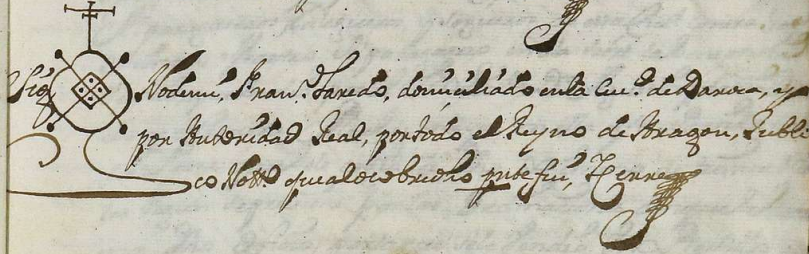 Sig No de mi, Fran.co Faredo, domiciliado en la Ciu.d de Daroca, y
por Autoridad Real, por todo el Reyno de Aragon, Publi
co Nott.o que a lo sobredho pnte fui, Et Cerre